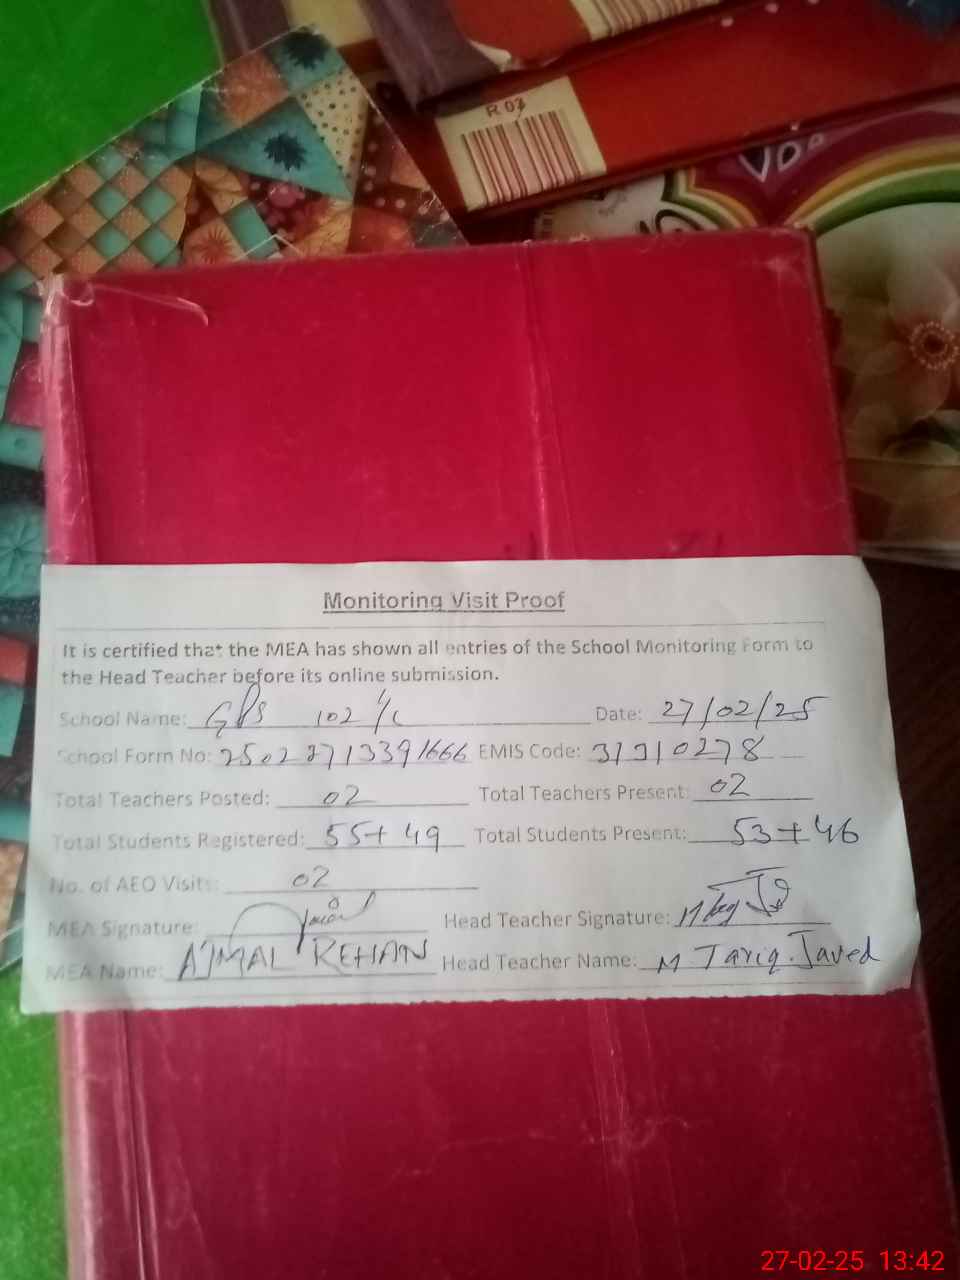 R 07
Monitoring Visit Proof
It is certified that the MEA has shown all entries of the School Monitoring Form to
the Head Teacher before its online submission.
School Name: GPS 102 Date: 27/02/25
School Form No: 25022713391666 EMIS Code: 31310278
Total Teachers Posted: 02 Total Teachers Present: 02
Total Students Registered: 55+ 49 Total Students Present: 53+46
No. of AEO Visits: 02
MEA Signature: Head Teacher Signature:
MEA Name: AJMAL REHAN Head Teacher Name: M Tariq. Javed
27-02-25 13:42